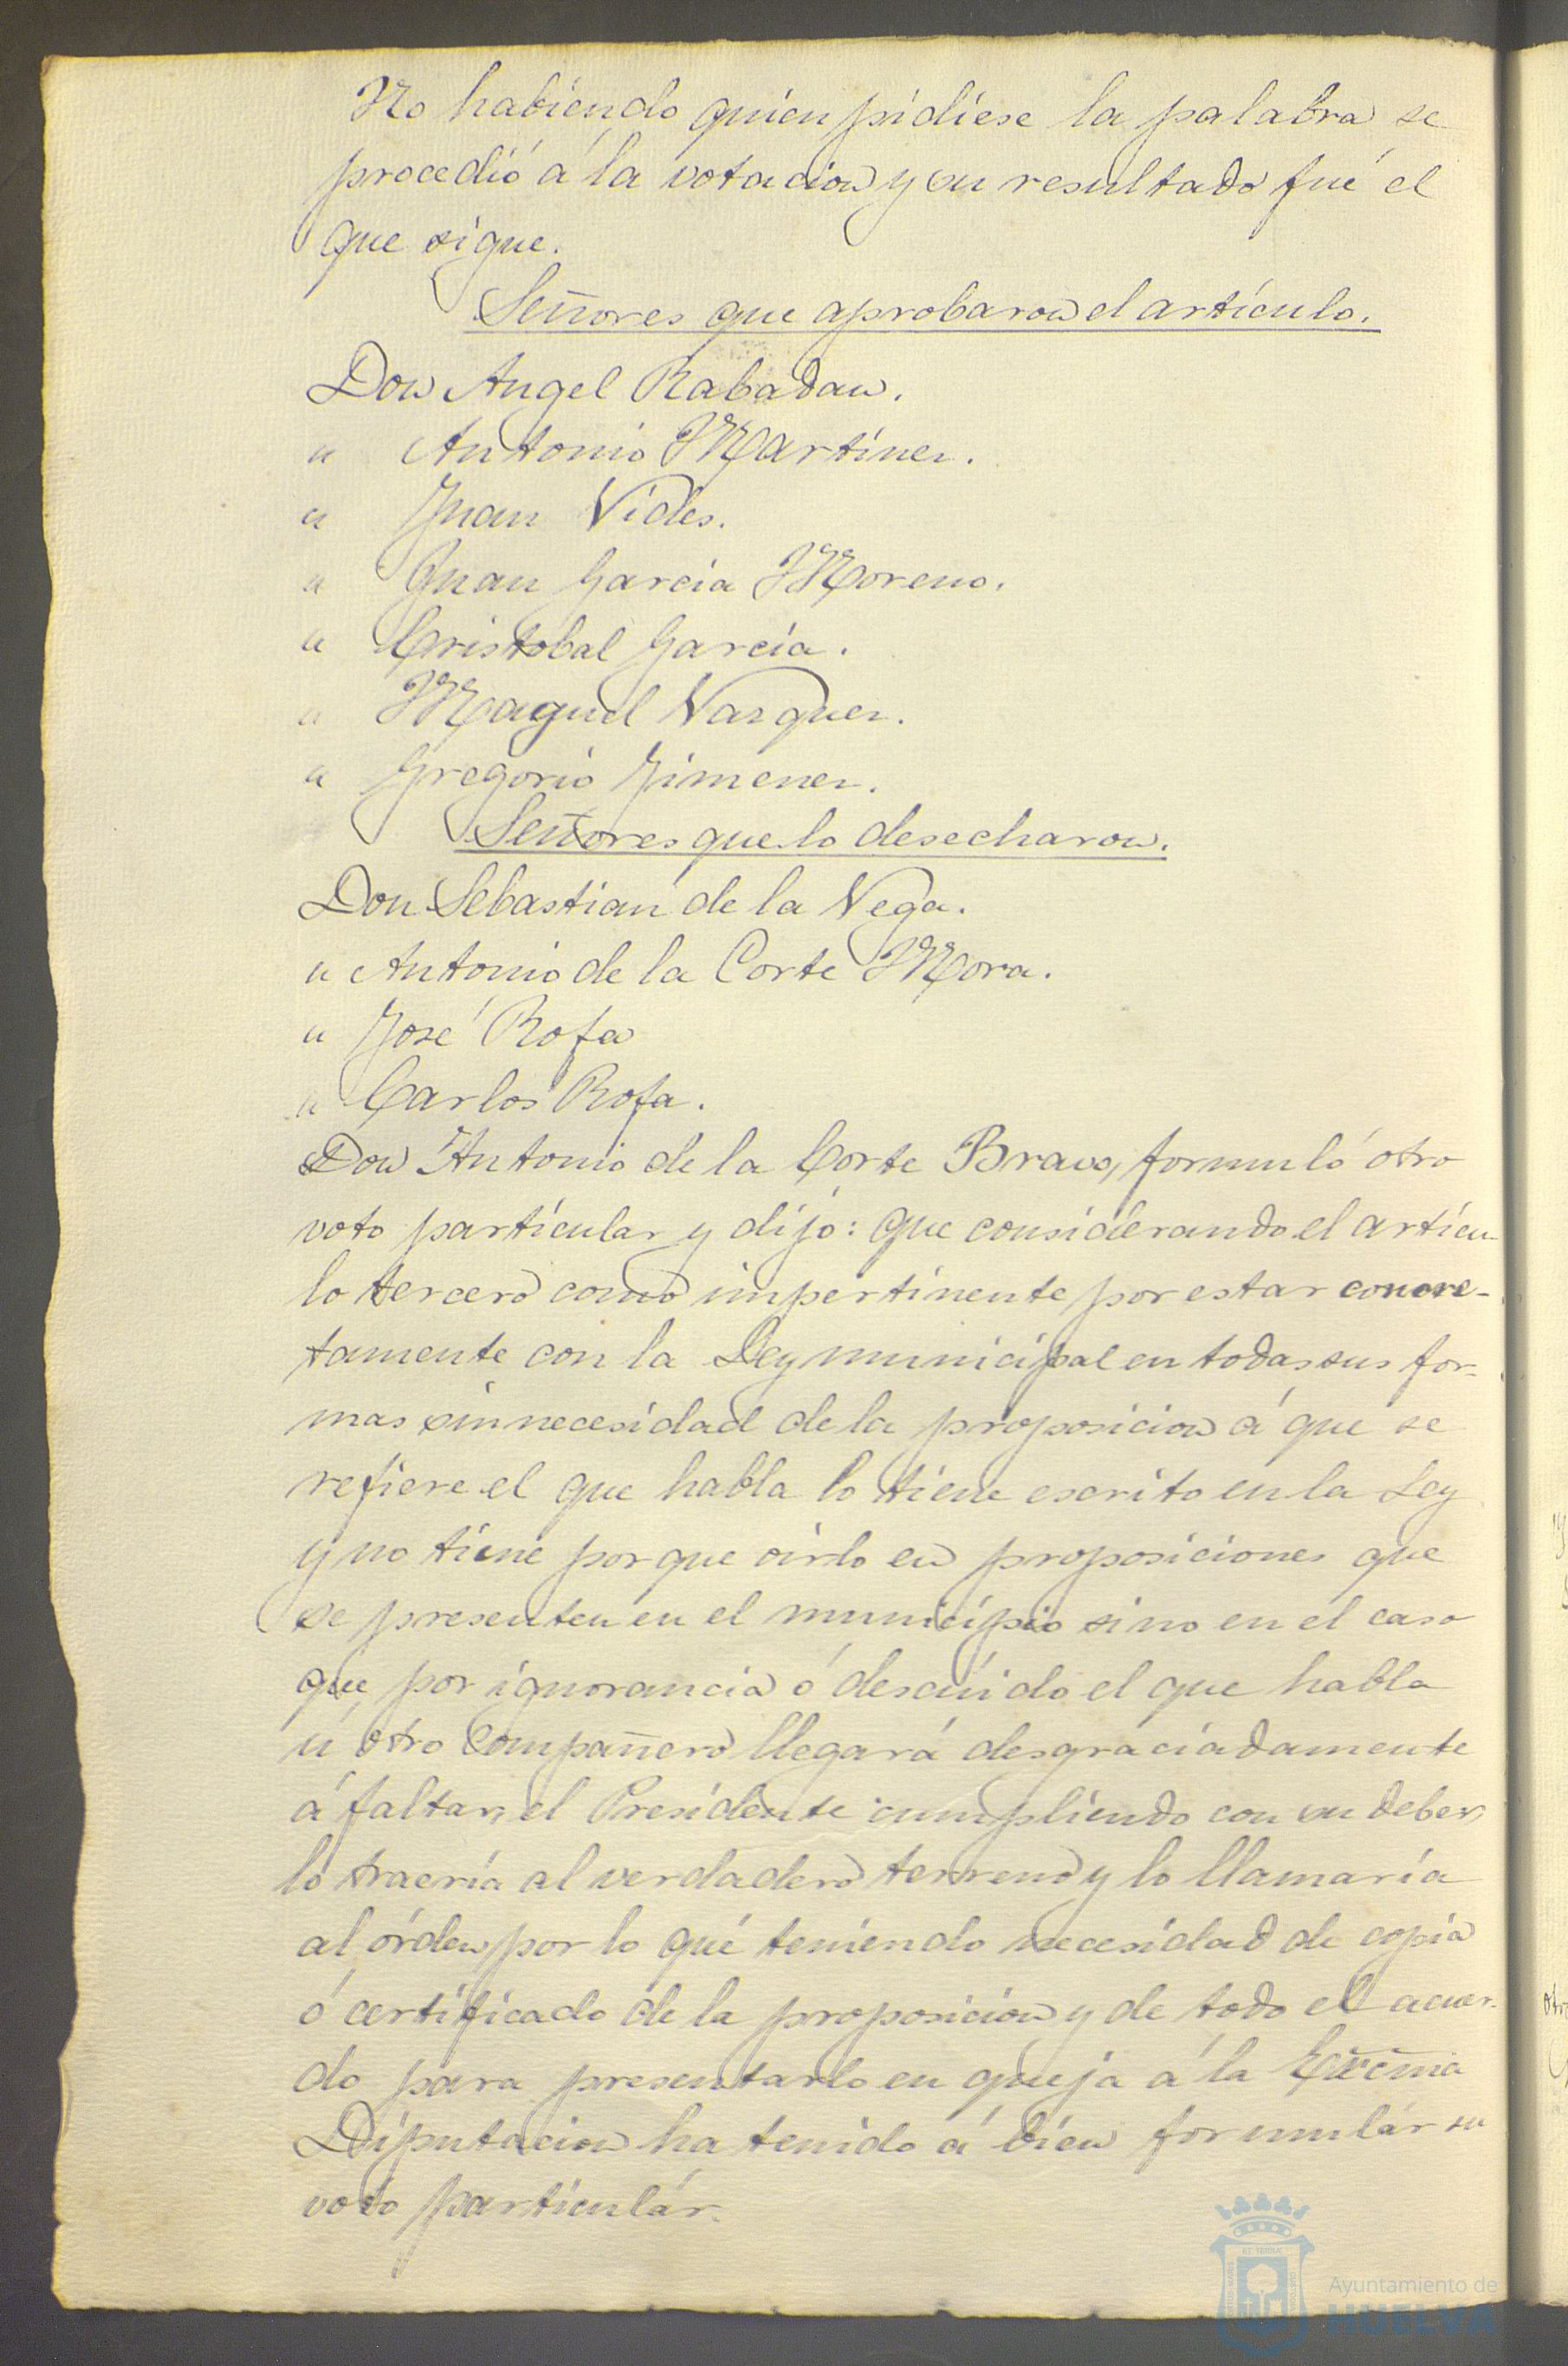 No habiendo quien pidiese la palabra se
procedió á la votacion y su resultado fué el
que sigue.
Señores que aprobaron el artículo.
Don Angel Rabadan.
" Antonio Martinez.
" Juan Vides.
" Juan García Moreno.
" Cristobal García.
" Maguel Vazquez.
" Gregorio Jimenez.
Señores que lo desecharon.
Don Sebastian de la Vega.
" Antonio de la Corte Mora.
" José Rofa
" Carlos Rofa.
Don Antonio de la Corte Bravo, formuló otro
voto particular y dijo: que considerando el artícu-
lo tercero como impertinente por estar concre-
tamente con la Ley municipal en todas sus for-
mas sin necesidad de la proposicion á que se
refiere el que habla lo tiene escrito en la Ley
y no tiene porque oirlo en proposiciones que
se presenten en el municipio sino en el caso
que por ignorancia ó descuido el que habla
ú otro Compañero llegará desgraciadamente
á faltar, el Presidente cumpliendo con su deber,
lo traería al verdadero terreno y lo llamaría
al órden por lo qué teniendo necesidad de copia
ó certificado de la proposicion y de todo el acuer-
do para presentarlo en queja á la Excma
Diputacion ha tenido á bien formulár su
voto particulár.
Ayuntamiento de
HUELVA